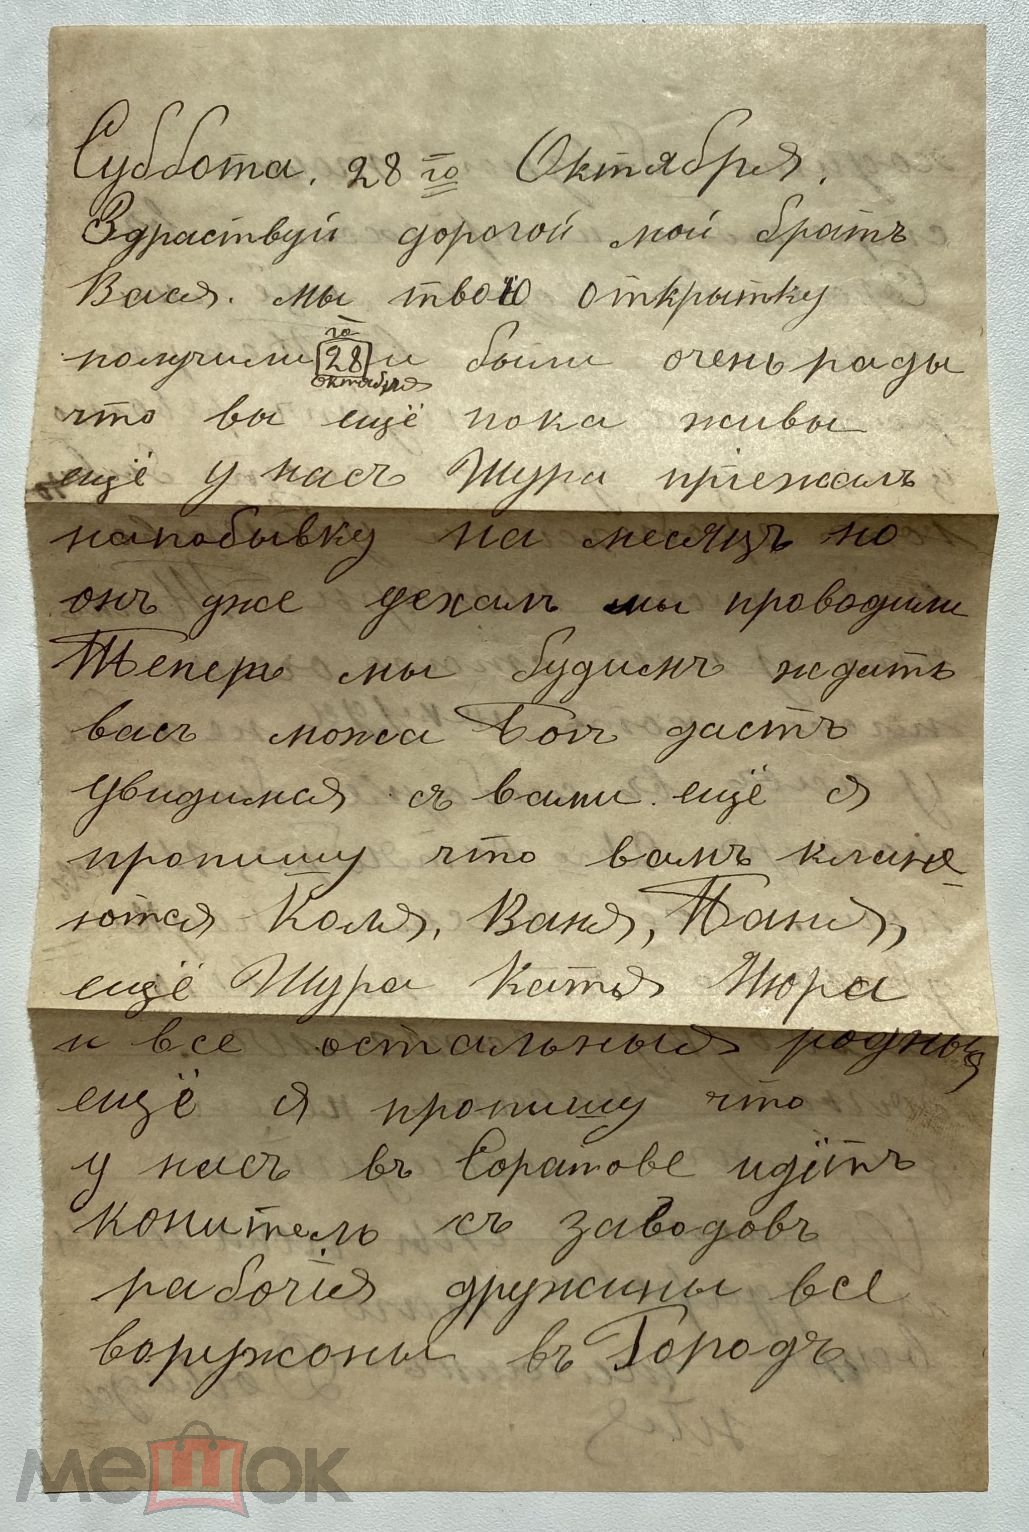 Суббота. 28 го Октября.
Здраствуй дорогой мой братъ
Вася. мы твою открытку
получили 28 го октября и были очень рады
что вы ещё пока живы
ещё у насъ Шура пріежалъ
напобывку на месяцъ но
онъ уже уехалъ мы проводили
Теперь мы будимъ ждать
васъ можа Богъ дастъ
увидимся съ вами. ещё я
пропишу что вамъ кланя-
ются Коля, Ваня, Паня,
ещё Шура Катья Шюра
и все остальныя родныя
ещё я пропишу что
у насъ въ Соратове идётъ
копитель съ заводовъ
рабочія дружины все
воружоны въ Городъ
мешок